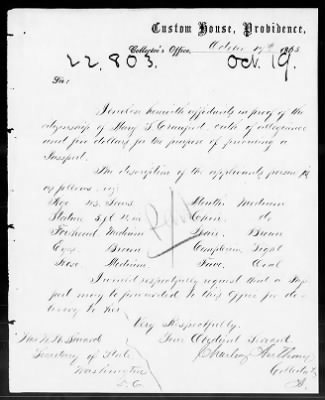 Custom House, Providence,
Collector's Office, October 17th 1865
22.803. Oct. 19.
Sir:
I enclose herewith affidavits in proof of the
citizenship of Mary S oath of allegiance
and five dollars for the purpose of procuring a
Passport.
The description of the applicants person is
as follows. viz:
Age Years Mouth Medium
Stature 5 ft in Chin do
Forehead Medium Hair Brown
Eyes Brown Complexion Light
Nose Medium Face Oval
I would respectfully request that a Pass
port may be forwarded to this Office for de
livery to her
Very Respectfully.
Your Obedient Servant
Hon W H Seward Charles Anthony
Secretary of State Collector
Washington
D.C.